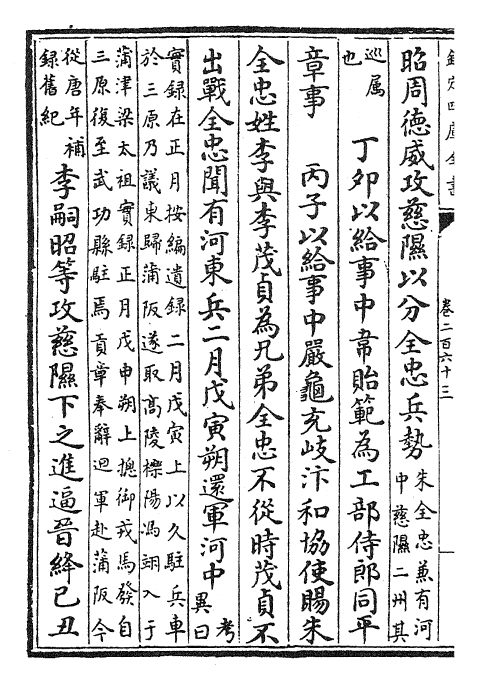 欽定四庫全書
卷二百六十三
昭周德威攻慈隰以分全忠兵勢
朱全忠兼有河
中慈隰二州其
巡属
也
丁夘以給事中韋貽範為工部侍郎同平
章事 丙子以給事中嚴龜充岐汴和協使賜朱
全忠姓李與李茂貞為兄弟全忠不從時茂貞不
出戰全忠聞有河東兵二月戊寅朔還軍河中
考
異曰
實録在正月按編遺録二月戊寅上以久駐兵車
於三原乃議東歸蒲阪遂取髙陵櫟陽馮翊入于
蒲津梁太祖實録正月戊申朔上摠御戎馬發自
三原復至武功縣駐焉貢章奉辭迴軍赴蒲阪今
從唐年補
録舊紀
李嗣昭等攻慈隰下之進逼晉絳己丑